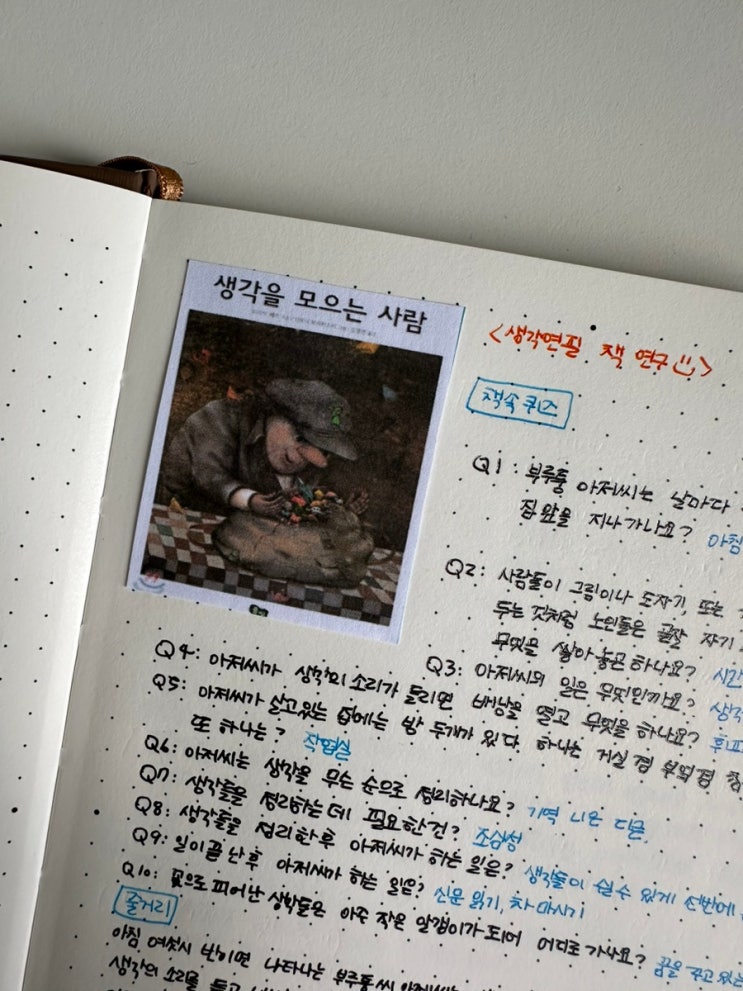 생각을 모으는 사람
<생각연필 책 연구>
책속 퀴즈
Q1: 부루퉁 아저씨는 날마다
집앞을 지나가나요? 아침
Q2: 사람들이 그림이나 도자기, 또는
두는 것처럼 노인들은 곧잘 자기
무엇을 쌓아 놓곤 하나요? 시간
Q3: 아저씨의 일은 무엇인가요? 생각
Q4: 아저씨가 생각의 소리가 들리면 배낭을 열고 무엇을 하나요? 휘파
Q5: 아저씨가 살고있는 집에는 방 두개가 있다. 하나는 거실 겸 부엌 겸 침
또 하나는? 작업실
Q6: 아저씨는 생각을 무슨 순으로 정리하나요? 기역 니은 디귿
Q7: 생각들을 정리하는데 필요한건? 조심성
Q8: 생각들을 정리한후 아저씨가 하는 일은? 생각들이 쉴수 있게 선반에
Q9: 일이 끝난후 아저씨가 하는 일은? 신문 읽기, 차 마시기
Q10: 꽃으로 피어난 생각들은 아주 작은 알갱이가 되어 어디로 가나요? 꿈을 꾸고 있는
줄거리
아침 여섯시 반이면 나타나는 부루퉁씨 아저씨는
생각의 소리를 듣고